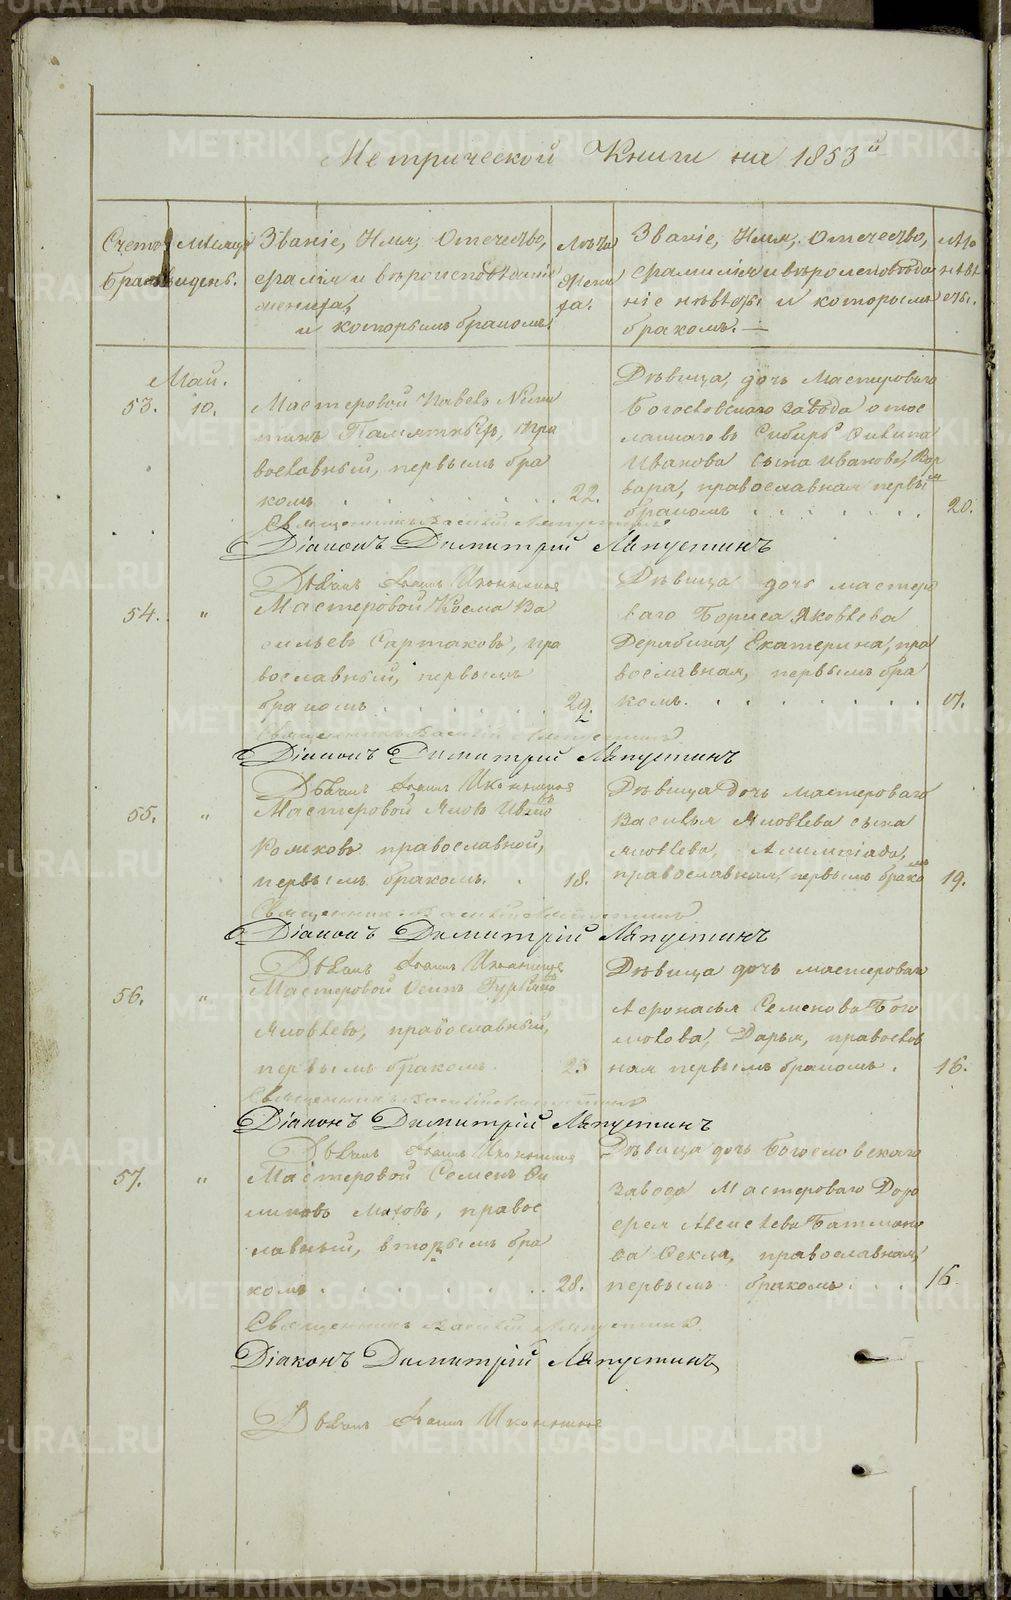 Метрической Книги на 1853й
Счетъ браковъ
Месяцъ и день.
Званіе, Имя, Отечество,
фамилія и вѣроисповѣданіе
жениха,
и которымъ бракомъ.
Лѣта
жени
ха.
Званіе, Имя, Отечество,
фамилія и вѣроисповѣда
ніе невѣсты и которымъ
бракомъ.
Май.
53.
10.
Мастеровой Павелъ Ники
тинъ, пра
вославный, первымъ бра
комъ
22.
Дѣвица, дочь Мастероваго
Богословскаго завода отос
ланнаго въ Сибирь
Иванова сына Иванова, Вар
вара, православная первым
бракомъ
20.
Священникъ Василій Ляпустинъ
Діаконъ Димитрій Ляпустинъ
54.
"
Мастеровой Козма Ва
сильевъ Сартаковъ, пра
вославный, первымъ
бракомъ
29.
Дѣвица дочь мастеро
ваго Бориса Яковлева
Дерябина, Екатерина, пра
вославная, первымъ бра
комъ.
17.
Священникъ Василій Ляпустинъ
Діаконъ Димитрій Ляпустинъ
55.
"
Мастеровой Яковъ Ивановъ
православной,
первымъ бракомъ.
18.
Дѣвица Дочь мастероваго
Василья Яковлева сына
Яковлева, Алимпіада,
православная, первымъ бракомъ
19.
Священникъ Василій Ляпустинъ
Діаконъ Димитрій Ляпустинъ
56.
"
Мастеровой Осипъ
Яковлевъ, православный,
первымъ бракомъ.
23
Дѣвица дочь мастероваго
Аѳонасья Семенова Бого
молова, Дарья, православ
ная первымъ бракомъ.
16.
Священникъ Василій Ляпустинъ
Діаконъ Димитрій Ляпустинъ
57.
"
Мастеровой Семенъ Фи
липовъ, правос
лавный, вторымъ бра
комъ
28.
Дѣвица дочь Богословскаго
завода Мастероваго Доро
фея Алексѣева Батмано
ва Фекла, православная,
первымъ бракомъ
16.
Священникъ Василій Ляпустинъ
Діаконъ Димитрій Ляпустинъ
METRIKI.GASO-URAL.RU